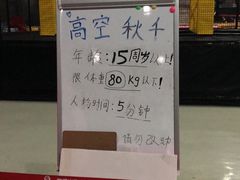 高空 秋千
年龄:15周岁以上!
限体重 80 Kg以下!
人均时间:5分钟
请勿改动